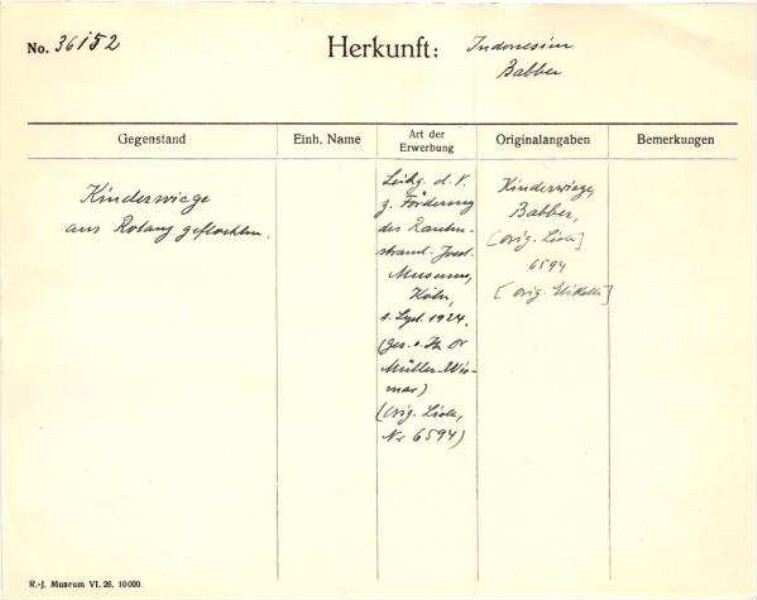 No. 36152
Herkunft: Indonesien
Babber
Gegenstand
Einh. Name
Art der
Erwerbung
Originalangaben
Bemerkungen
Kinderwiege
aus Rotang geflochten.
d. V.
z. Förderung
des Rauten-
strauch-Joest-
Museums,
Köln,
1924.
(ges. v. Dr
Müller-Wis-
mar)
(Orig. Liste,
Nr 6594)
Kinderwiege,
Babber,
[orig. Liste]
6594
[orig. Etikette]
R.-J. Museum VI. 26. 10000.